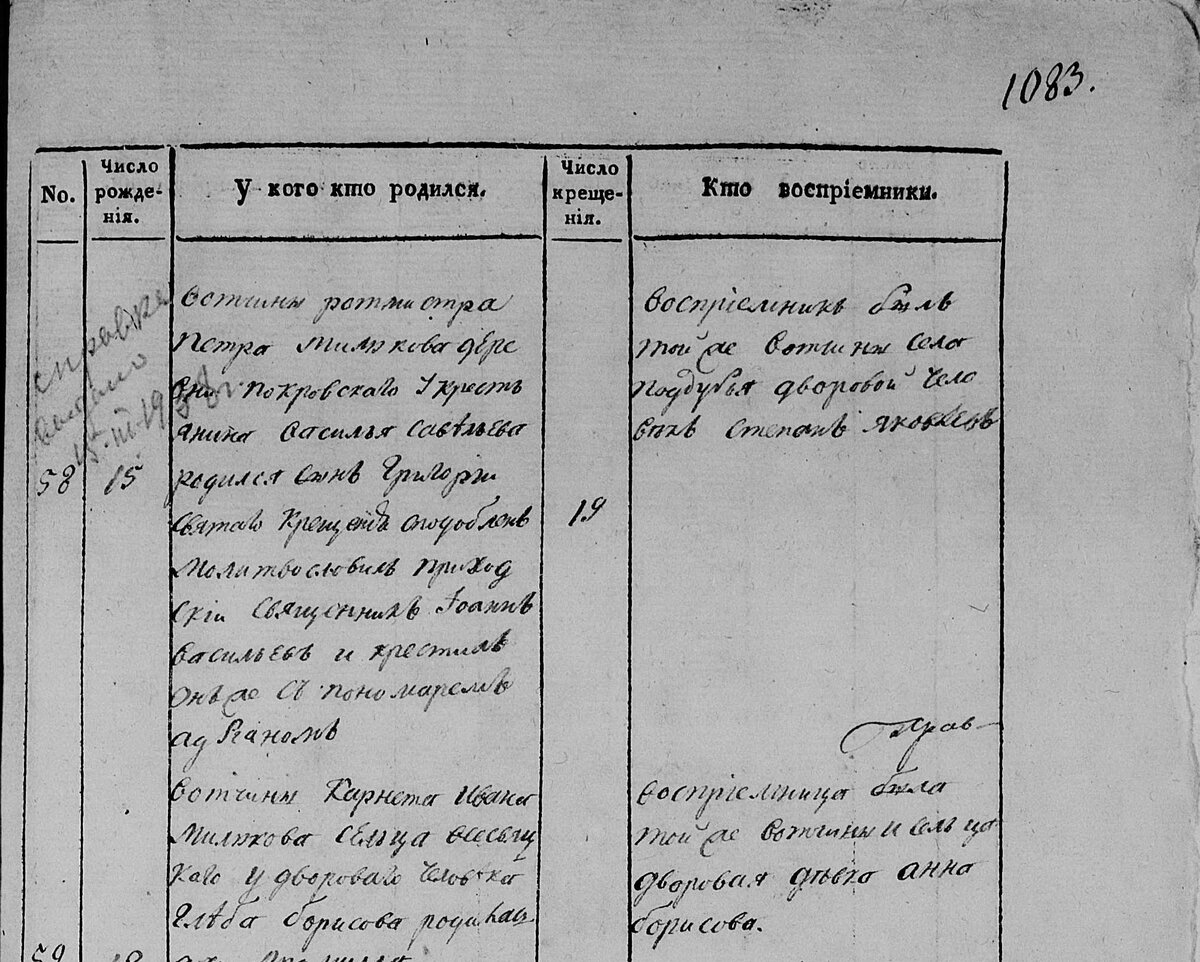 1083.
No.
Число рожденія.
У кого кто родился.
Число крещенія.
Кто воспріемники.
справка
выдано
15·III·1958г
58
15
вотчины ротмистра
Петра Милюкова дере
вни покровскаго У крестъ
янина василья савѣльева
родился сынъ Григорій
святаго Крещенія сподобленъ
Молитвословилъ приход
скій священникъ Іоаннъ
васильевъ и крестилъ
онъ же съ пономаремъ
адріаномъ
19
воспріемникъ былъ
той же вотчины села
поддубья дворовой чело
векъ степанъ яковлевъ
вотчины Карнета ивана
Милюкова сельца
каго у двороваго человѣка
Глѣба борисова родилась
воспріемница была
той же вотчины и сельца
дворовая дѣвка анна
борисова.
59
18